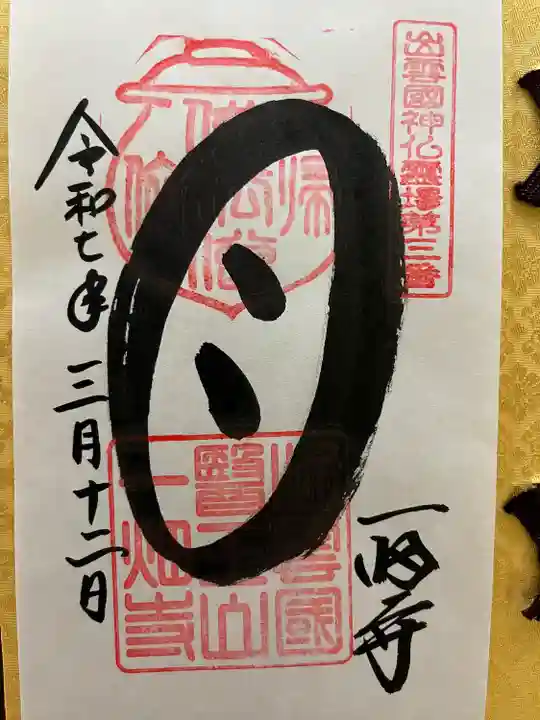 出雲國神仏霊場第三番
目
一畑寺
出雲國
醫王山
一畑寺
令和七年三月十二日